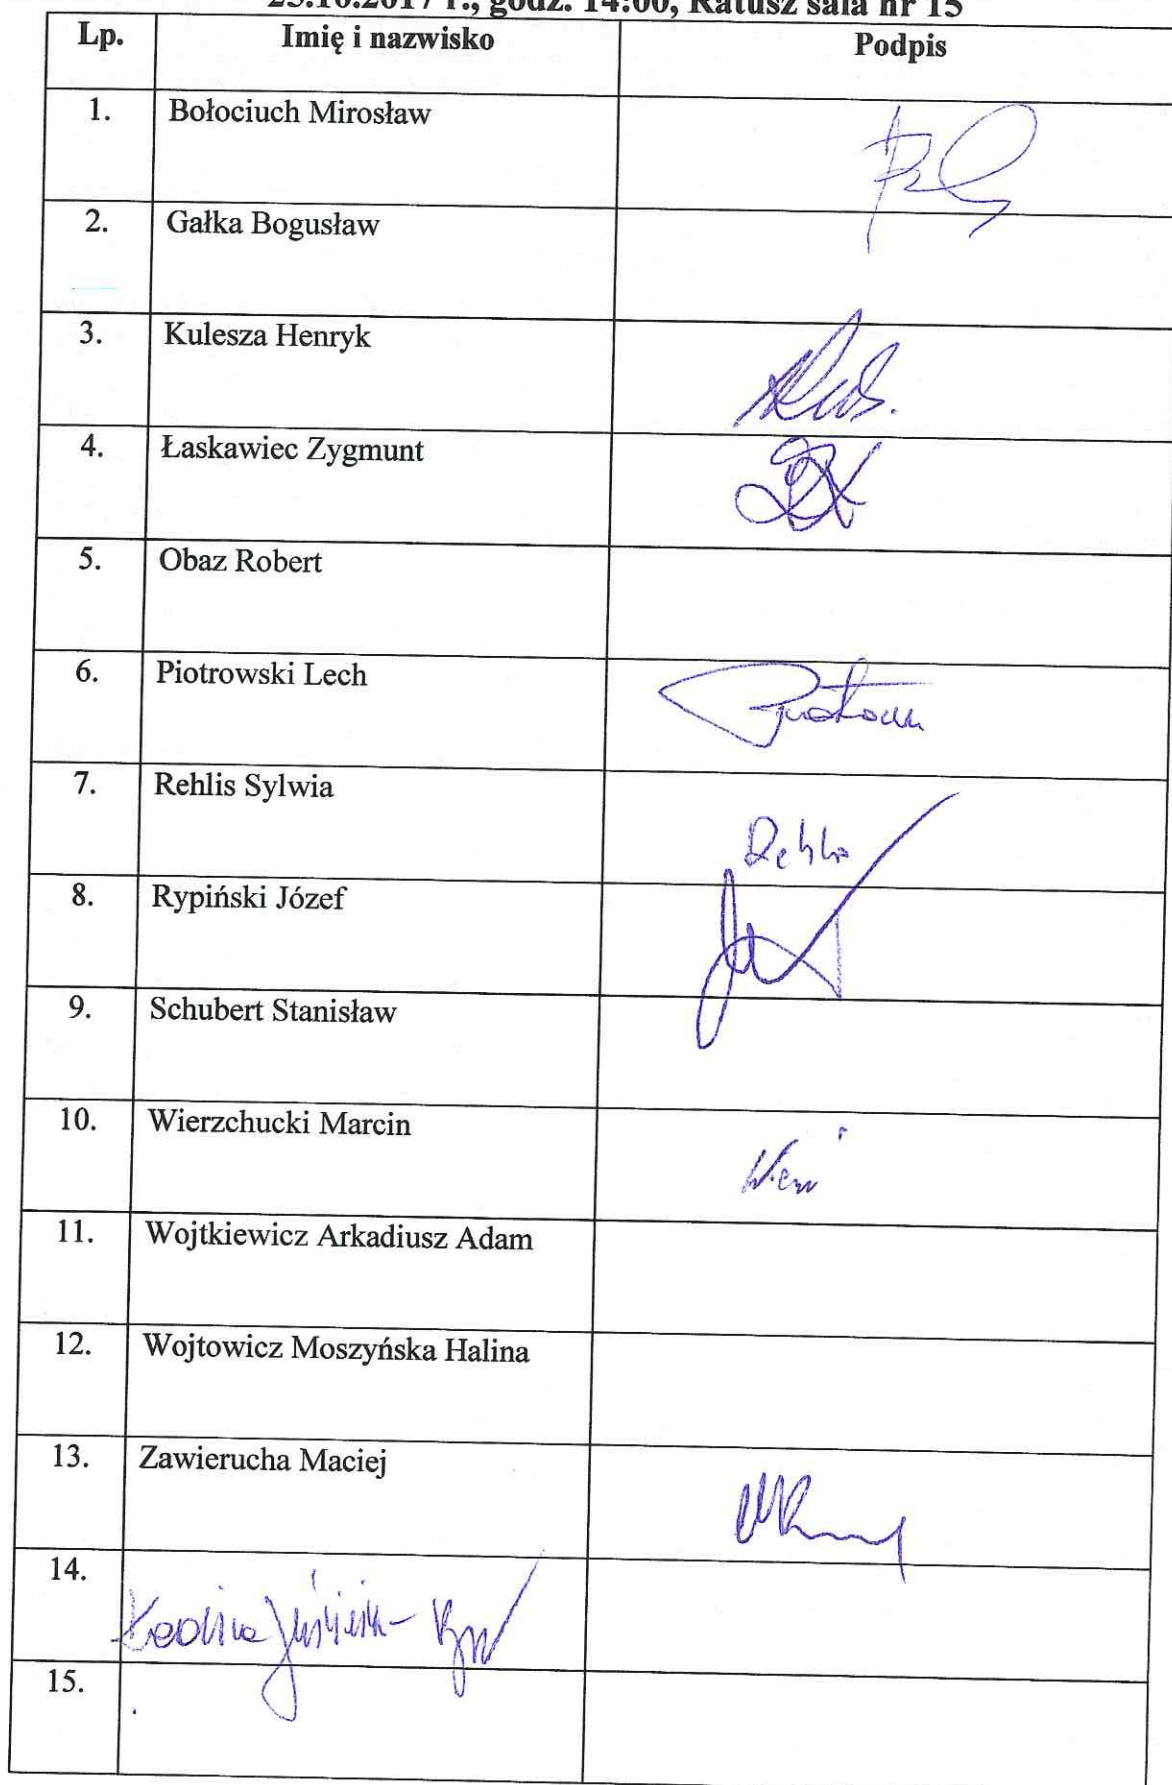 25.10.2017 r., godz. 14:00, Ratusz sala nr 15
Lp. Imię i nazwisko Podpis
1. Bołociuch Mirosław
2. Gałka Bogusław
3. Kulesza Henryk
4. Łaskawiec Zygmunt
5. Obaz Robert
6. Piotrowski Lech
7. Rehlis Sylwia
8. Rypiński Józef
9. Schubert Stanisław
10. Wierzchucki Marcin
11. Wojtkiewicz Arkadiusz Adam
12. Wojtowicz Moszyńska Halina
13. Zawierucha Maciej
14.
15.